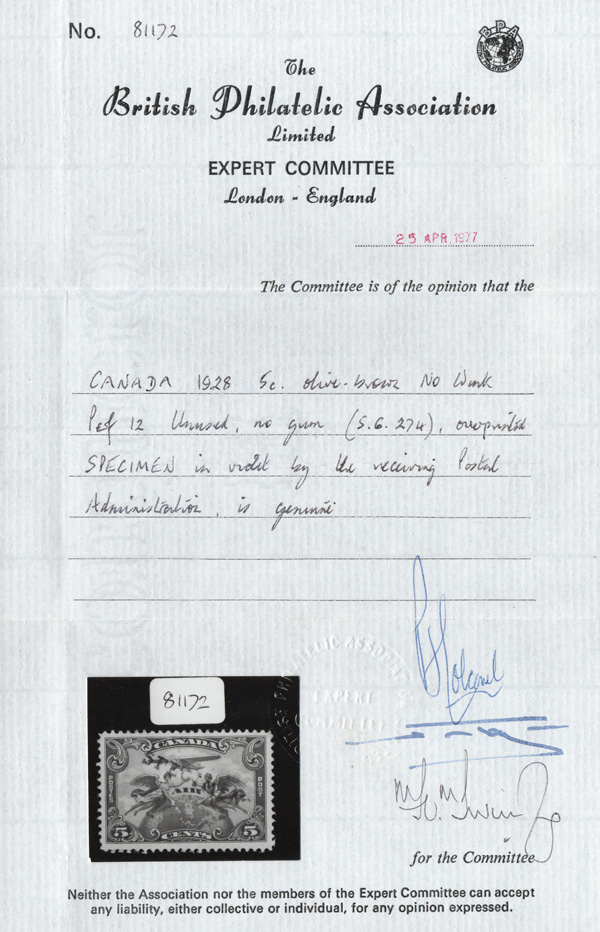 No. 81172
BPA
The
British Philatelic Association
Limited
EXPERT COMMITTEE
London - England
25 APR 1977
The Committee is of the opinion that the
CANADA 1928 5c. olive-brown No Wmk
Perf 12 Unused, no gum (S.G. 274), overprinted
SPECIMEN in violet by the receiving Postal
Administration, is genuine
81172
CANADA
AIR
POST
5 CENTS 5
for the Committee
Neither the Association nor the members of the Expert Committee can accept
any liability, either collective or individual, for any opinion expressed.